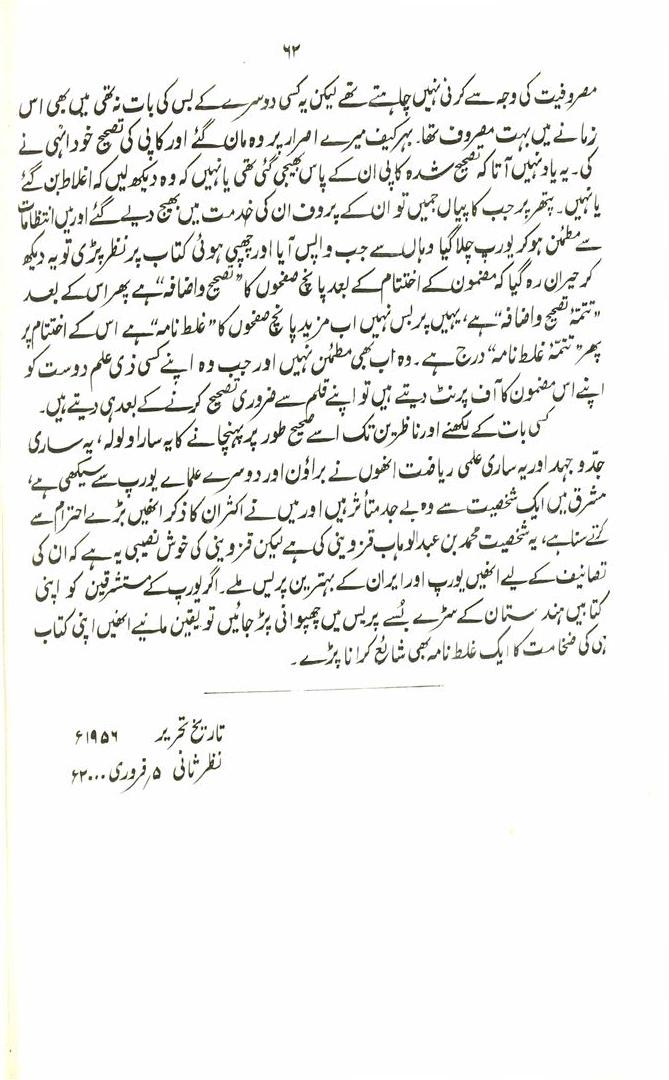 ۶۲
مصروفیت کی وجہ سے کرنی نہیں چاہتے تھے لیکن یہ کسی دوسرے کے بس کی بات نہ تھی میں بھی اس
زمانے میں بہت مصروف تھا۔ بہر کیف میرے اصرار پر وہ مان گئے اور کاپی کی تصحیح خود انہی نے
کی۔ یہ یاد نہیں آتا کہ تصحیح شدہ کاپی ان کے پاس بھیجی گئی تھی یا نہیں کہ وہ دیکھ لیں کہ اغلاط بن گئے
یا نہیں۔ پتھر پر جب کاپیاں جمیں تو ان کے پروف ان کی خدمت میں بھیج دیے گئے اور میں انتظامات
سے مطمئن ہو کر یورپ چلا گیا وہاں سے جب واپس آیا اور چھپی ہوئی کتاب پر نظر پڑی تو یہ دیکھ
کر حیران رہ گیا کہ مضمون کے اختتام کے بعد پانچ صفحوں کا "تصحیح واضافہ" ہے پھر اس کے بعد
"تتمۂ تصحیح واضافہ" ہے، یہیں پر بس نہیں اب مزید پانچ صفحوں کا "غلط نامہ" ہے اس کے اختتام پر
پھر "تتمۂ غلط نامہ" درج ہے۔ وہ اب بھی مطمئن نہیں اور جب وہ اپنے کسی ذی علم دوست کو
اپنے اس مضمون کا آف پرنٹ دیتے ہیں تو اپنے قلم سے ضروری تصحیح کرنے کے بعد ہی دیتے ہیں۔
کسی بات کے لکھنے اور ناظرین تک اسے صحیح طور پر پہنچانے کا یہ سارا ولولہ، یہ ساری
جدّ و جہد اور یہ ساری علمی ریاضت انھوں نے براؤن اور دوسرے علماے یورپ سے سیکھی ہے،
مشرق میں ایک شخصیت سے وہ بے حد متأثر ہیں اور میں نے اکثر ان کا ذکر انھیں بڑے احترام سے
کرتے سنا ہے، یہ شخصیت محمد بن عبدالوہاب قزوینی کی ہے لیکن قزوینی کی خوش نصیبی یہ ہے کہ ان کی
تصانیف کے لیے انھیں یورپ اور ایران کے بہترین پریس ملے۔ اگر یورپ کے مستشرقین کو اپنی
کتابیں ہندستان کے سڑے بُسے پریس میں چھپوانی پڑ جائیں تو یقین مانیے انھیں اپنی کتاب
ہی کی ضخامت کا ایک غلط نامہ بھی شائع کرانا پڑے۔
تاریخ تحریر ۱۹۵۶ء
نظر ثانی ۵؍ فروری ۲۰۰۰ء